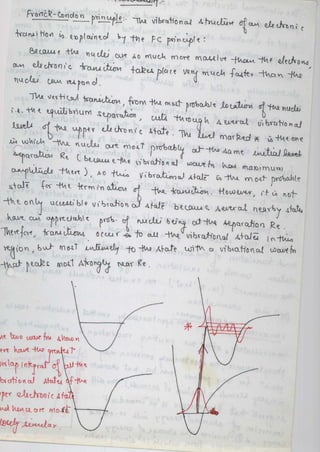 Franck-Condon principle: The vibrational structure of an electronic
transition is explained by the FC principle:
Because the nuclei are so much more massive than the electrons,
an electronic transition takes place very much faster than the
nuclei can respond.
The vertical transition, from the most probable location of the nuclei
i.e. the equilibrium separation, cuts through several vibrational
levels of the upper electronic state. The level marked * is the one
in which the nuclei are most probably at the same initial
separation Re (because the vibrational wavefn has maximum
amplitude there), so this vibrational state is the most probable
state for the termination of the transition. However, it is not
the only accessible vibrational state because several nearby states
have an appreciable prob of nuclei being at the separation Re.
Therefore, transitions occur to all the vibrational states in this
region, but most intensely to the state with a vibrational wavefn
that peaks most strongly near Re.
*
two wavefns shown
have the greatest
overlap integral of all the
vibrational states of the
upper electronic state
and hence are most
closely similar.